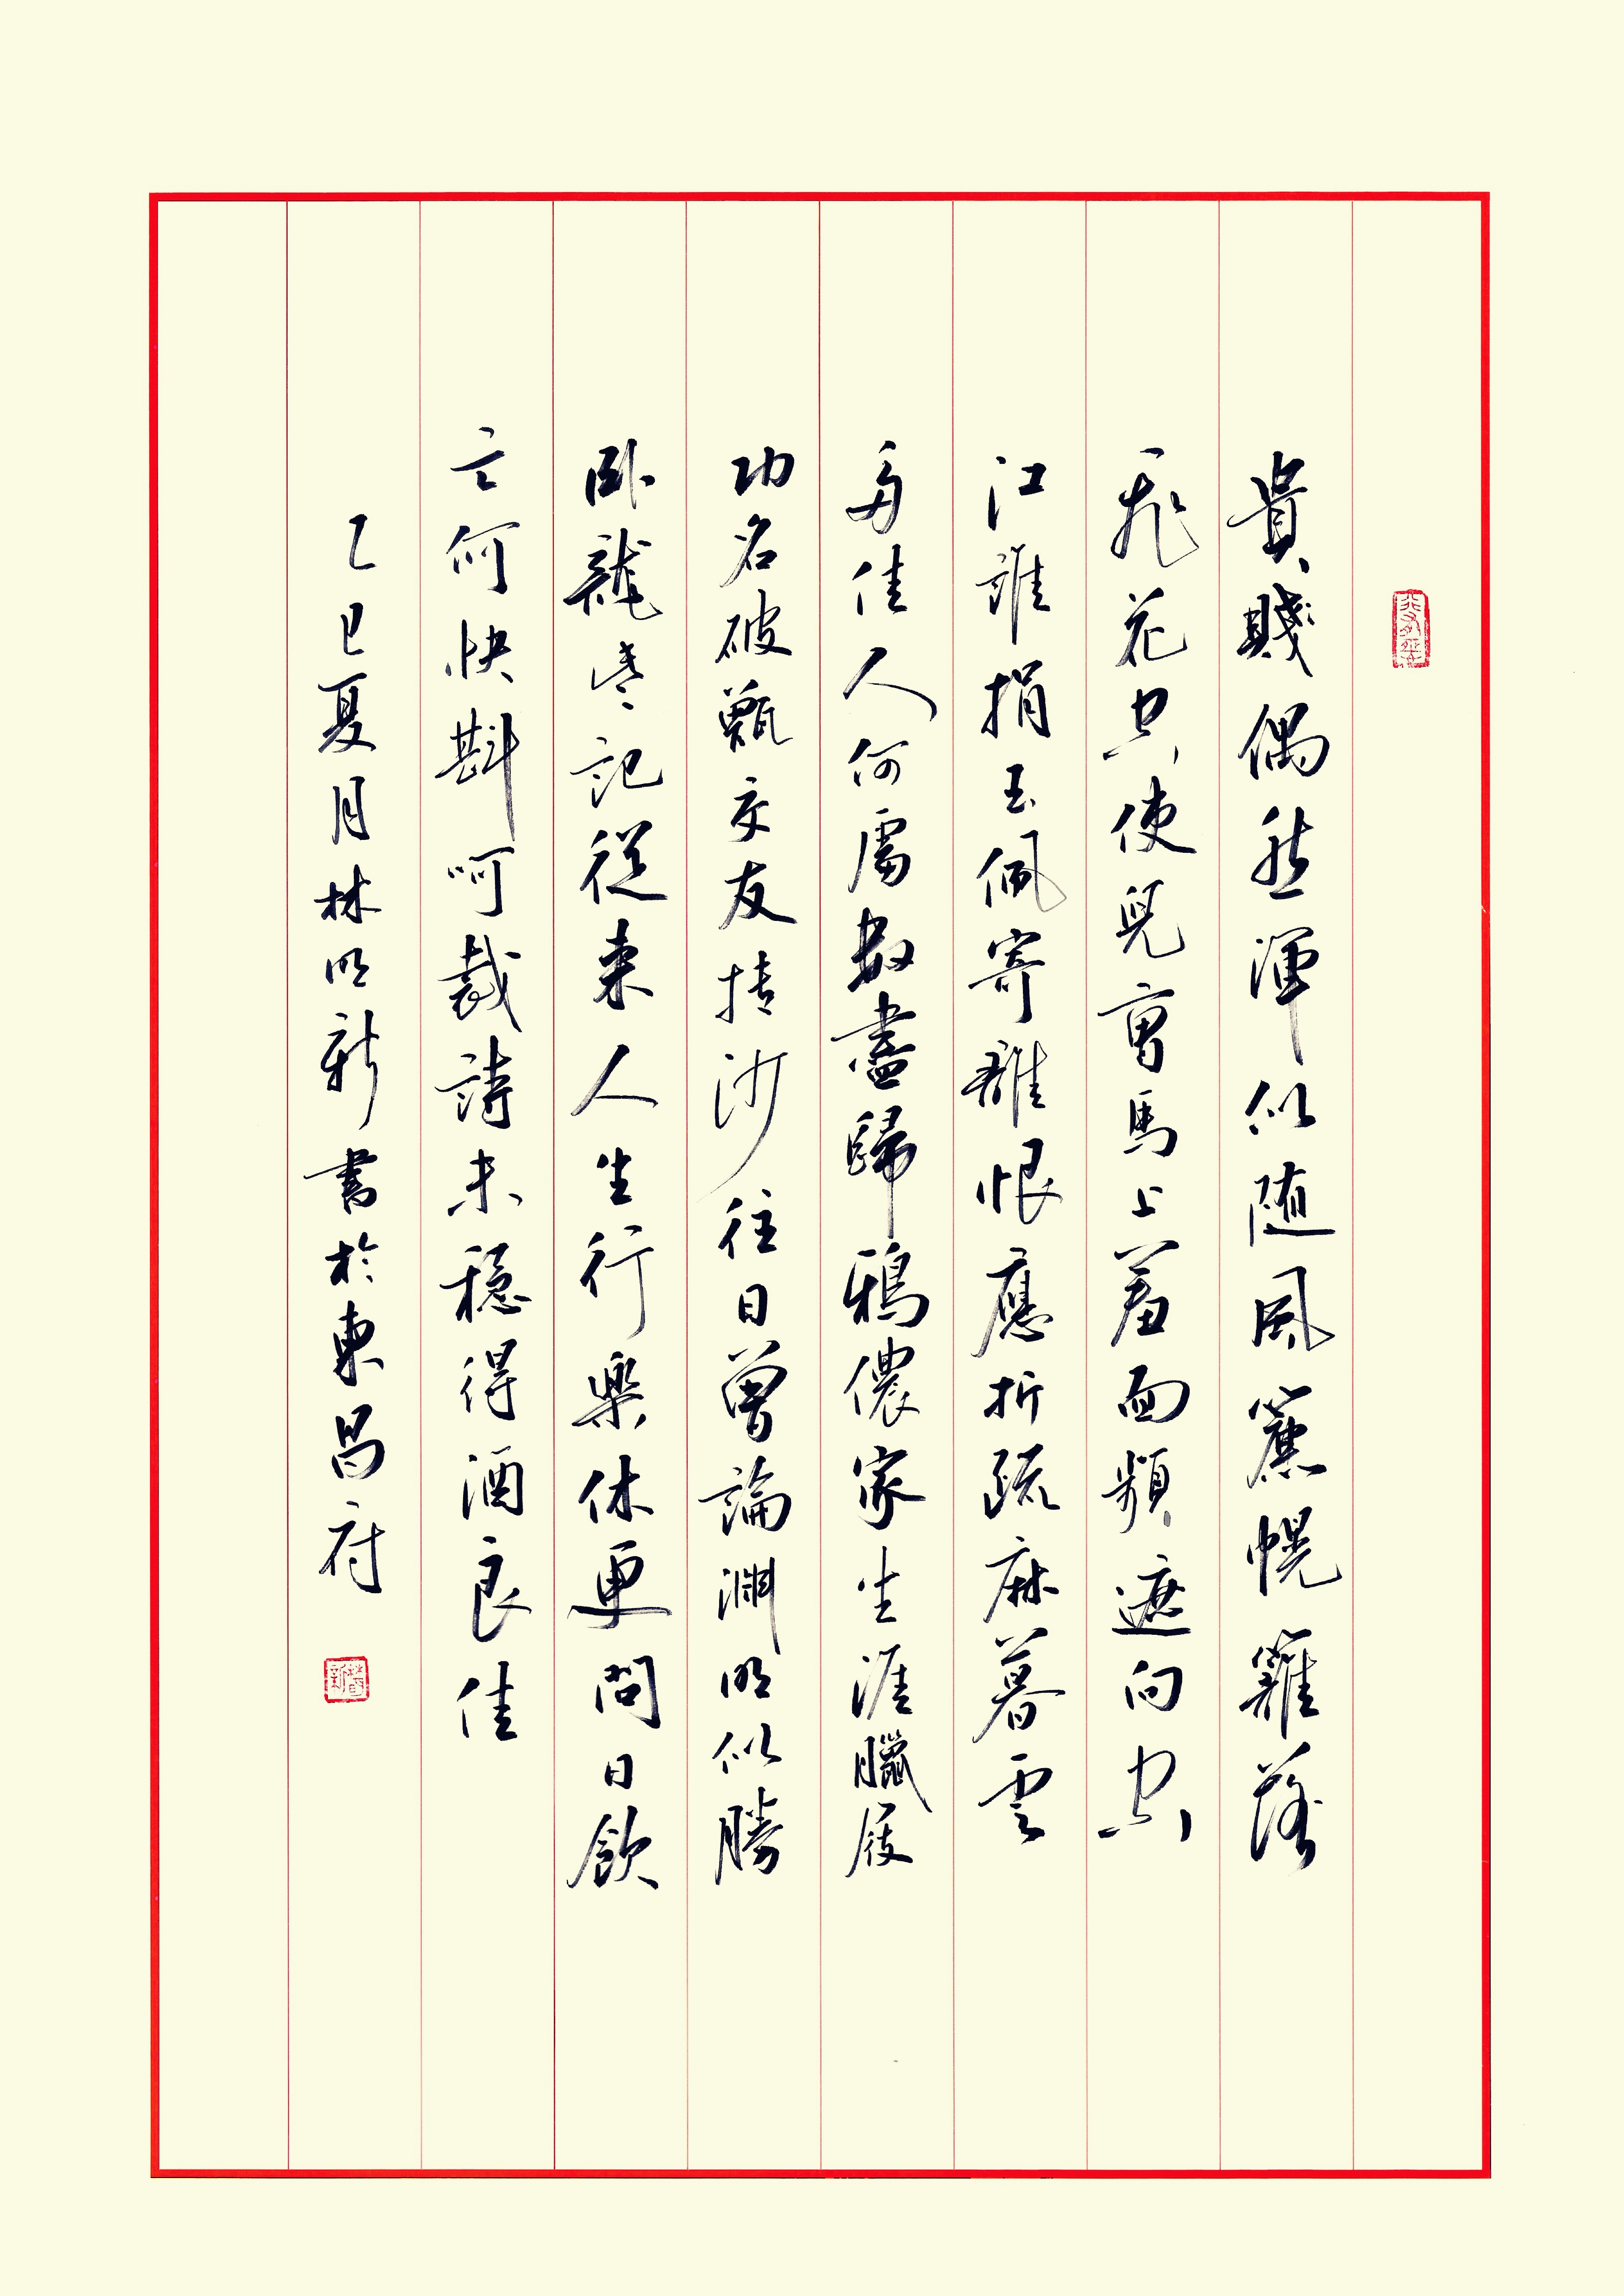 貴賤偶然渾似随風簾幌籬落
飛花空使兒曹馬上羞面頻遮向空
江誰捐玉佩寄離恨應折疏麻暮雲
多佳人何處數盡歸鴉儂家生涯臘屐
功名破甑交友抟沙往日曾論淵明似勝
卧龍些記從來人生行樂休更問日飲
亡何快斟呵裁詩未穩得酒良佳
乙巳夏月林明新書於東昌府